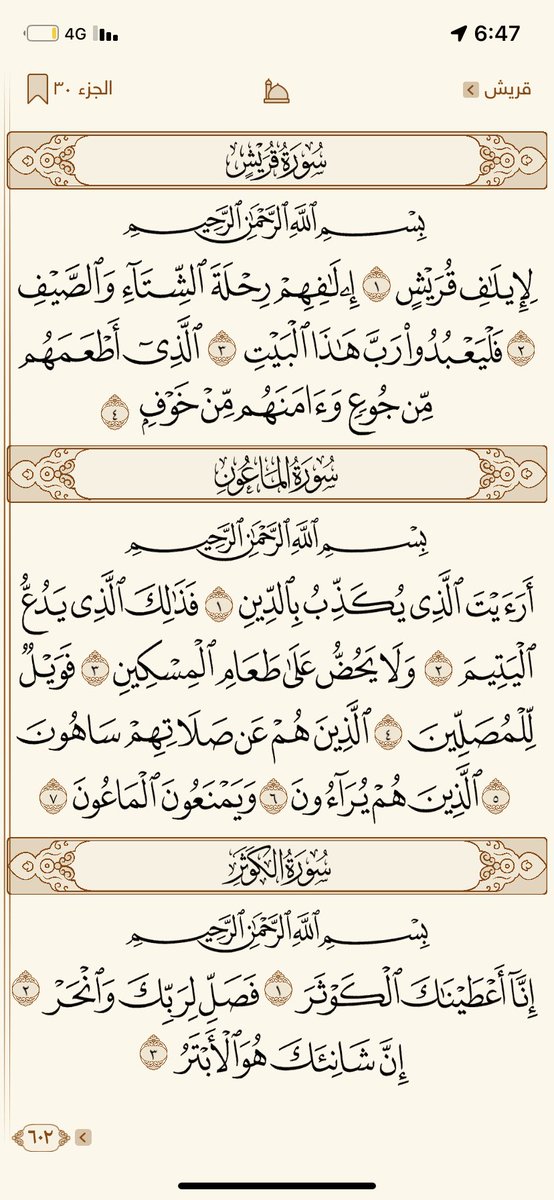 4G 6:47
قريش الجزء ٣٠
سُورَةُ قُرَيْشٍ
بِسْمِ ٱللَّهِ ٱلرَّحْمَٰنِ ٱلرَّحِيمِ
لِإِيلَٰفِ قُرَيْشٍ ١ إِۦلَٰفِهِمْ رِحْلَةَ ٱلشِّتَآءِ وَٱلصَّيْفِ
٢ فَلْيَعْبُدُوا۟ رَبَّ هَٰذَا ٱلْبَيْتِ ٣ ٱلَّذِىٓ أَطْعَمَهُم
مِّن جُوعٍ وَءَامَنَهُم مِّنْ خَوْفٍۭ ٤
سُورَةُ المَاعُونِ
بِسْمِ ٱللَّهِ ٱلرَّحْمَٰنِ ٱلرَّحِيمِ
أَرَءَيْتَ ٱلَّذِى يُكَذِّبُ بِٱلدِّينِ ١ فَذَٰلِكَ ٱلَّذِى يَدُعُّ
ٱلْيَتِيمَ ٢ وَلَا يَحُضُّ عَلَىٰ طَعَامِ ٱلْمِسْكِينِ ٣ فَوَيْلٌ
لِّلْمُصَلِّينَ ٤ ٱلَّذِينَ هُمْ عَن صَلَاتِهِمْ سَاهُونَ
٥ ٱلَّذِينَ هُمْ يُرَآءُونَ ٦ وَيَمْنَعُونَ ٱلْمَاعُونَ ٧
سُورَةُ الكَوْثَرِ
بِسْمِ ٱللَّهِ ٱلرَّحْمَٰنِ ٱلرَّحِيمِ
إِنَّآ أَعْطَيْنَٰكَ ٱلْكَوْثَرَ ١ فَصَلِّ لِرَبِّكَ وَٱنْحَرْ ٢
إِنَّ شَانِئَكَ هُوَ ٱلْأَبْتَرُ ٣
٦٠٢